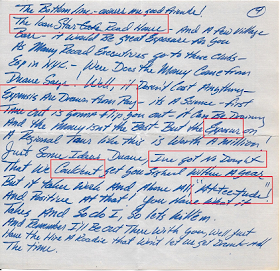 The Bottom Line - answer my good friends!
The Texas Star Cafe Road House - And A few Village
- it Would Be Great Exposure for You
As Many Road Executives go to these clubs -
Esp in NYC. - Were Does the Money Come from
Duane Says! Well, it Doesn't Cost Anything -
Expenses Are Down then Pay - Its A Scene - first
Time out is gonna flip you out - it Can Be Draining
And the Money isnt the Best - But the Exposure on
A Regional Tour like this is Worth A Million!
Just Some Ideas Duane I've got No Doubt
That We Couldnt get You Signed Within A Year
But it takes Work And Above All "Att-ee-tude"
And Positive At that! You Have What it
Takes And So do I, So lets do'em.
And Remember I'll Be Out There With You, Well just
have to Hire A Roadie that Wont let us get Drunk All
The Time.